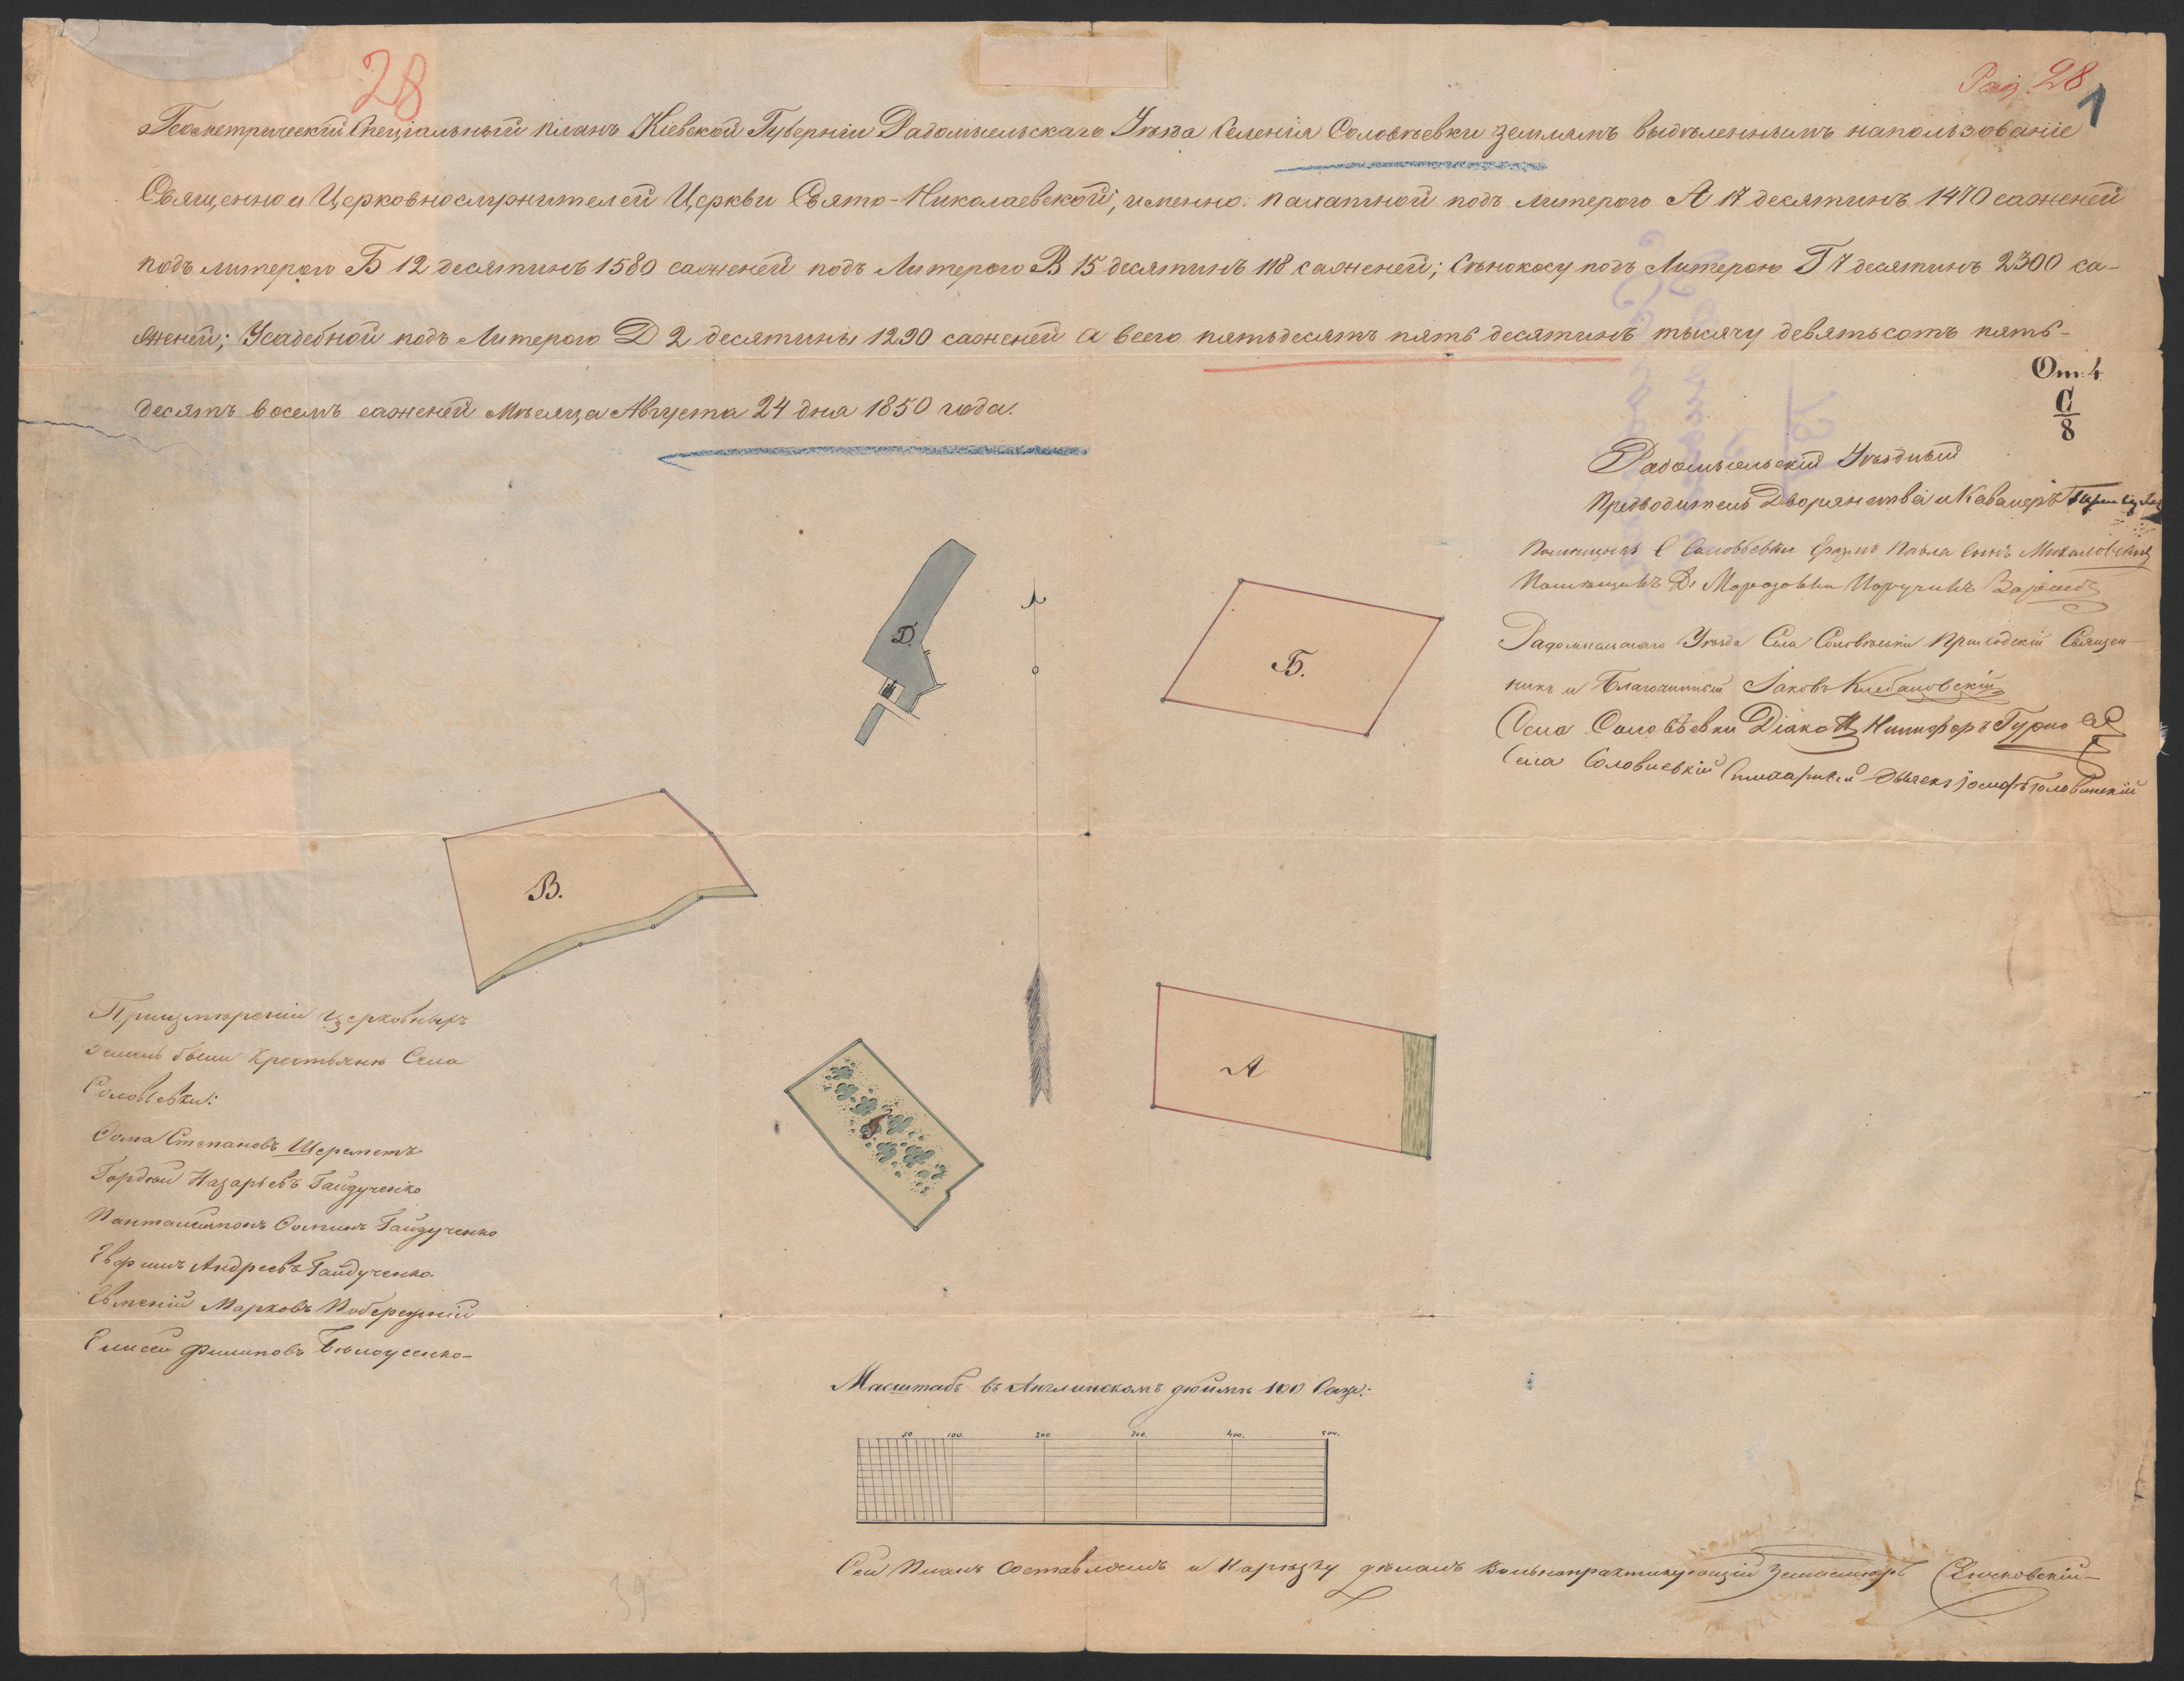 28
Рад. 28
1
Геометрическій Спеціальный планъ Кіевской Губерніи Радомысльскаго Уѣзда Селенія Соловѣевки землямъ выдѣленнымъ напользованіе
Священно и Церковнослужителей Церкви Свято-Николаевской, именно: пахатной подъ литерою А 17 десятинъ 1470 саженей
подъ литерою Б 12 десятинъ 1580 саженей подъ Литерою В 15 десятинъ 118 саженей; Сѣнокосу подъ Литерою Г 7 десятинъ 2300 са-
женей; Усадебной подъ Литерою Д 2 десятины 1290 саженей а всего пятьдесятъ пять десятинъ тысячу девятьсотъ пять-
десятъ восемъ саженей Мѣсяца Августа 24 дня 1850 года.
От. 4
С
8
Радомысльскій Уѣздный
Предводитель Дворянства и Кавалеръ
Помѣщикъ С Соловьевки Павла Сынъ
Помѣщикъ Д. Морозовки Поручикъ
Радомысльскаго Уѣзда Села Соловьевки Приходскій Священ-
никъ и Благочинный Іаковъ Клебановскій
Села Соловѣевки Діаконъ Никифоръ
Села
Д.
Б.
В.
А
Г
Приизмѣреніи Церковныхъ
земель были Крестьяне Села
Соловьевки:
Фома Степановъ Шереметъ
Гордѣй Назарьевъ Гайдученко
Панталимонъ Фоминъ Гайдученко
Андреевъ Гайдученко.
Марковъ Побережній
Елисей Филиповъ Бѣлоусенко
Масштабъ въ Англинскомъ дюймѣ 100 Саж:
50 100. 200 300. 400. 500.
Сей Планъ Составлялъ и Нарѣзку дѣлалъ Вольнопрактикующій Землемѣръ
39